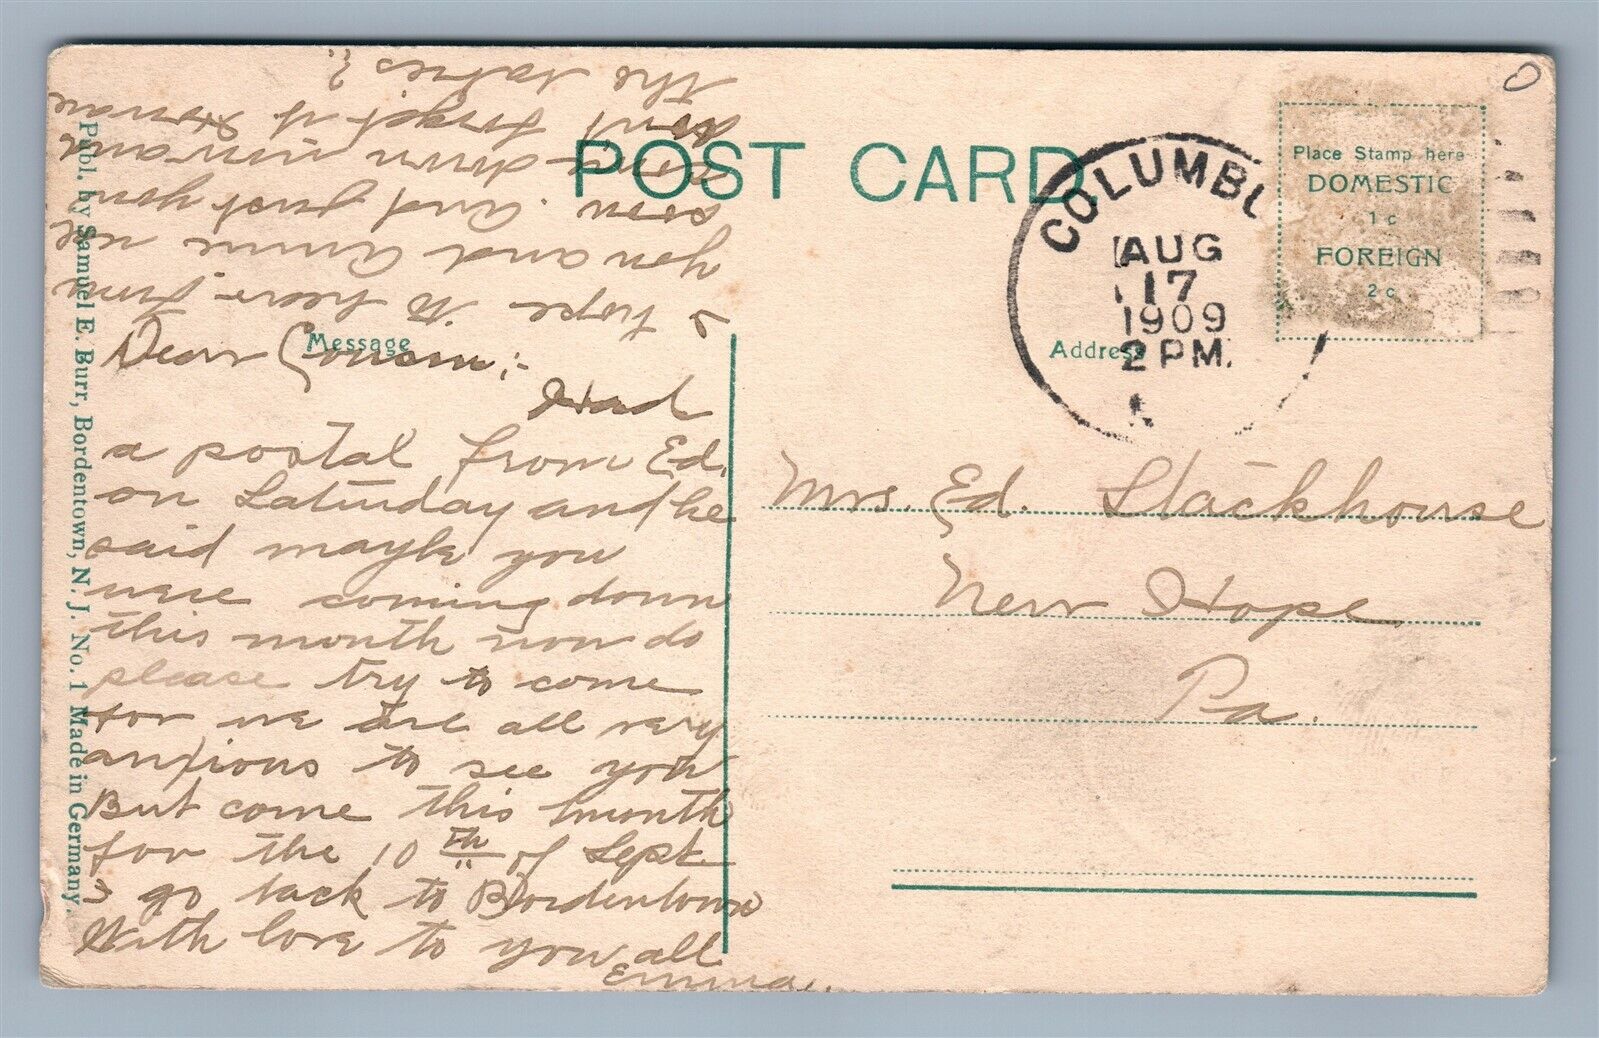 POST CARD.
Place Stamp here
DOMESTIC
1 c
FOREIGN
2 c
COLUMBU
AUG
17
1909
2 PM.
Message
Address
Dear Cousin:-
Had
a postal from Ed.
on Saturday and he
said maybe you
were coming down
this month now do
please try to come
for we are all very
anxious to see you
But come this month
for the 10th of Sept.
I go back to Bordentown
With love to you all
Emma.
I hope to hear from
you and Annie
soon. And just you
come down and
don't forget it
the babies?
Mrs. Ed. Stackhouse
New Hope
Pa.
Publ. by Samuel E. Burr, Bordentown, N. J. No. 1 Made in Germany.
0